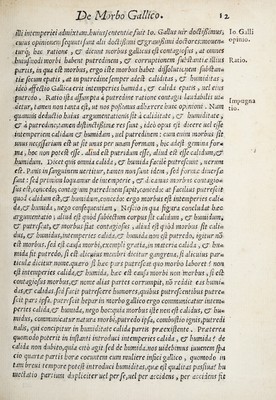 De Morbo Gallico. 12
illi intemperiei admixtam, huius sententiæ fuit Io. Gallus uir doctissimus,
cuius opinionem sequuti sunt alij doctissimi & grauissimi doctores moue-
tur q. hac ratione, & dicunt morbus gallicus est contagiosus, at omnes
huiusmodi morbi habent putredinem, & corruptionem substantiæ illius
partis, in qua est morbus, ergo iste morbus habet dissolutionem substan-
tiæ secum rapati, at in putredine semper adest caliditas, & humiditas,
ideò affectio Gallica erit intemperies humida, & calida cum
putredo. Ratio ista assumpta à putredine ratione contagij laudabilis aui
detur, tamen non tanta est, ut nos possimus adhærere huic opinioni. Nam
quamuis deductio huius argumentationis sit à caliditate, & humiditate,
& à putredine, tamen distinctissima res sunt, ideò opus est dicere uel esse
intemperiem calidam & humidam, uel putredinem: cum enim morbus sit
unus necessarium est ut sit unus per unam formam, hoc adest geminæ for-
mæ, hoc non potest esse. aliud est putridum esse, aliud est esse calidum, &
humidum. Docet quod omnia calida, & humida facilè putrescunt, uerum
est. Panis in sanguinem uertitur, tamen non sunt idem, sed formæ diuersæ
sunt: sed propius loquamur de intemperie, & dicamus morbus contagio
sus est, concedo, contagium putredinem sapit, concedo: at facilius putrescit
quod calidum est, & humidum, concedo: ergo morbus est intemperies calida
& humida, nego consequutiam, Nesciо in qua figura concludat hæc
argumentatio: aliud est quòd subiectum corpus sit calidum, & humidum,
& putrescat, & morbus fiat contagiosus, aliud est quòd morbus sit calidus,
& humidus, intemperies calida, & humida non est putredo, igitur nō
est morbus. sed est causa morbi, exempli gratia, in materia calida, & hu-
mida fit putredo, si est alicuius membri dicitur gangrena, si alicuius par-
ticulæ dicitur nomæ. quæro si hæc pars putrescat quo morbo laboret? non
est intemperies calida, & humida, hæc est causa morbi non morbus, si est
contagiosus morbus, & nomæ alias partes corrumpit, nō reddit eas humi-
das, & calidas, sed facit putrescere humores, quibus putrescentibus putre-
scit pars ipsa. putrescit hepar in morbo gallico ergo communicatur intem-
peries calida, & humida, nego hoc quia morbus iste non est calidus, & hu-
midus, communicatur natura morbi, putredo ipsa, combustio ignis, putredi-
nalis, qui concipitur in humiditate calida partis præexistente. Præterea
quomodo poterit in instanti introduci intemperies calida, & humida? de
calida non dubito, quia citò agit sed de humida, nos uidebimus iuuenem spa
cio quartæ partis horæ cocuntem cum muliere infici gallico, quomodo in
tam breui tempore potest introduci humiditas, quæ est qualitas passiua? hu
mectatio partium dupliciter uel per se, uel per accidens, per accidens fit
Io Galli
opinio.
Ratio.
Impugna
tio.